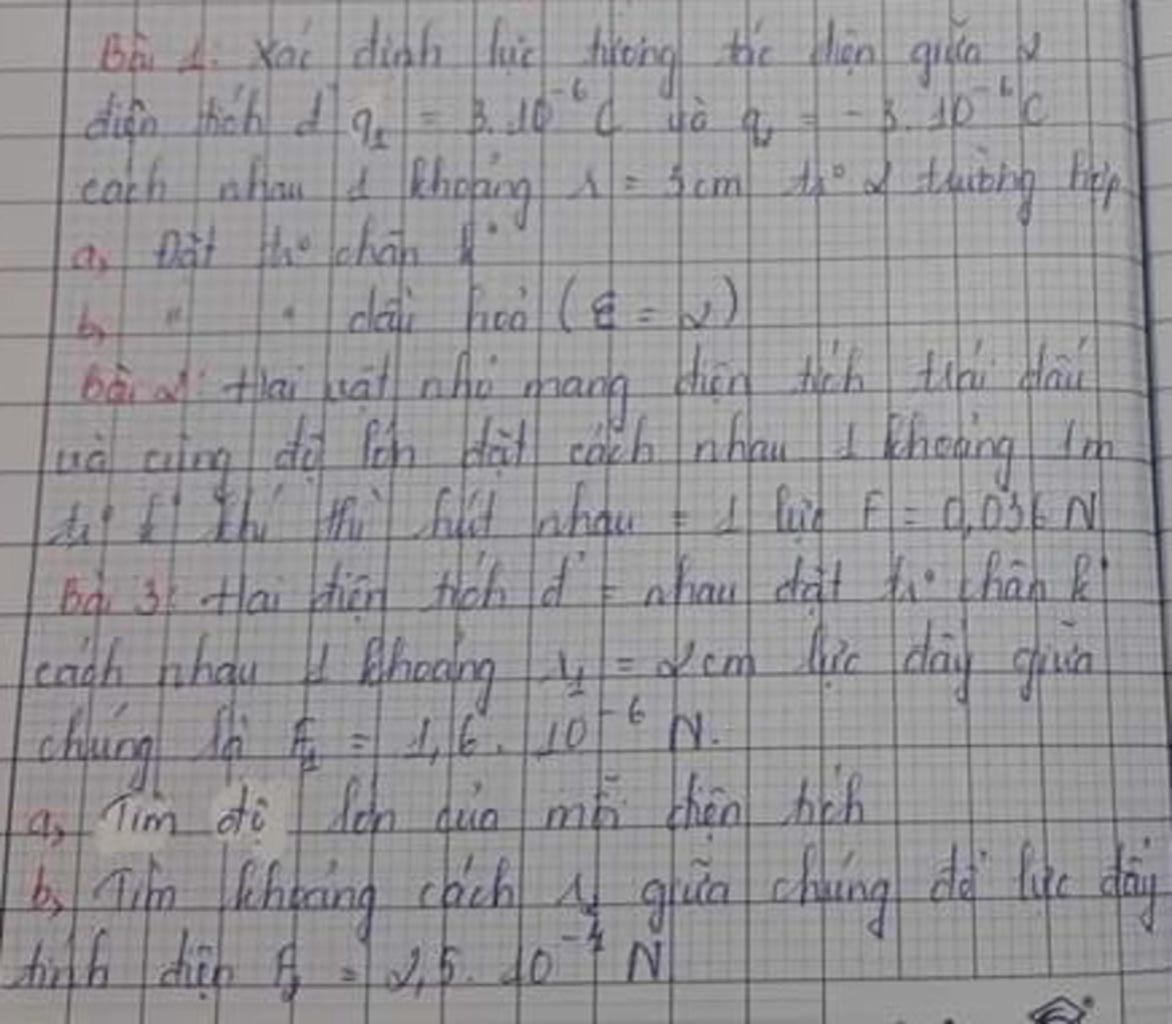 Bài 1. Xác định lực tương tác điện giữa 2
điện tích đ q₁ = 3.10⁻⁶ C và q₂ = -3.10⁻⁶ C
cách nhau 1 khoảng r = 3cm tr° 2 trường hợp
a, Đặt tr° chân k°
b, " " dầu hoả (ε = 2)
Bài 2: Hai vật nhỏ mang điện tích trái dấu
và cùng độ lớn đặt cách nhau 1 khoảng 1m
tr° k° khí thì hút nhau = 1 lực F = 0,036 N
Bài 3: Hai điện tích đ = nhau đặt tr° chân k°
cách nhau 1 khoảng r₁ = 2cm lực đẩy giữa
chúng là F₁ = 1,6. 10⁻⁶ N.
a, Tìm độ lớn của mỗi điện tích
b, Tìm khoảng cách r₂ giữa chúng để lực đẩy
tĩnh điện F₂ = 2,5. 10 N